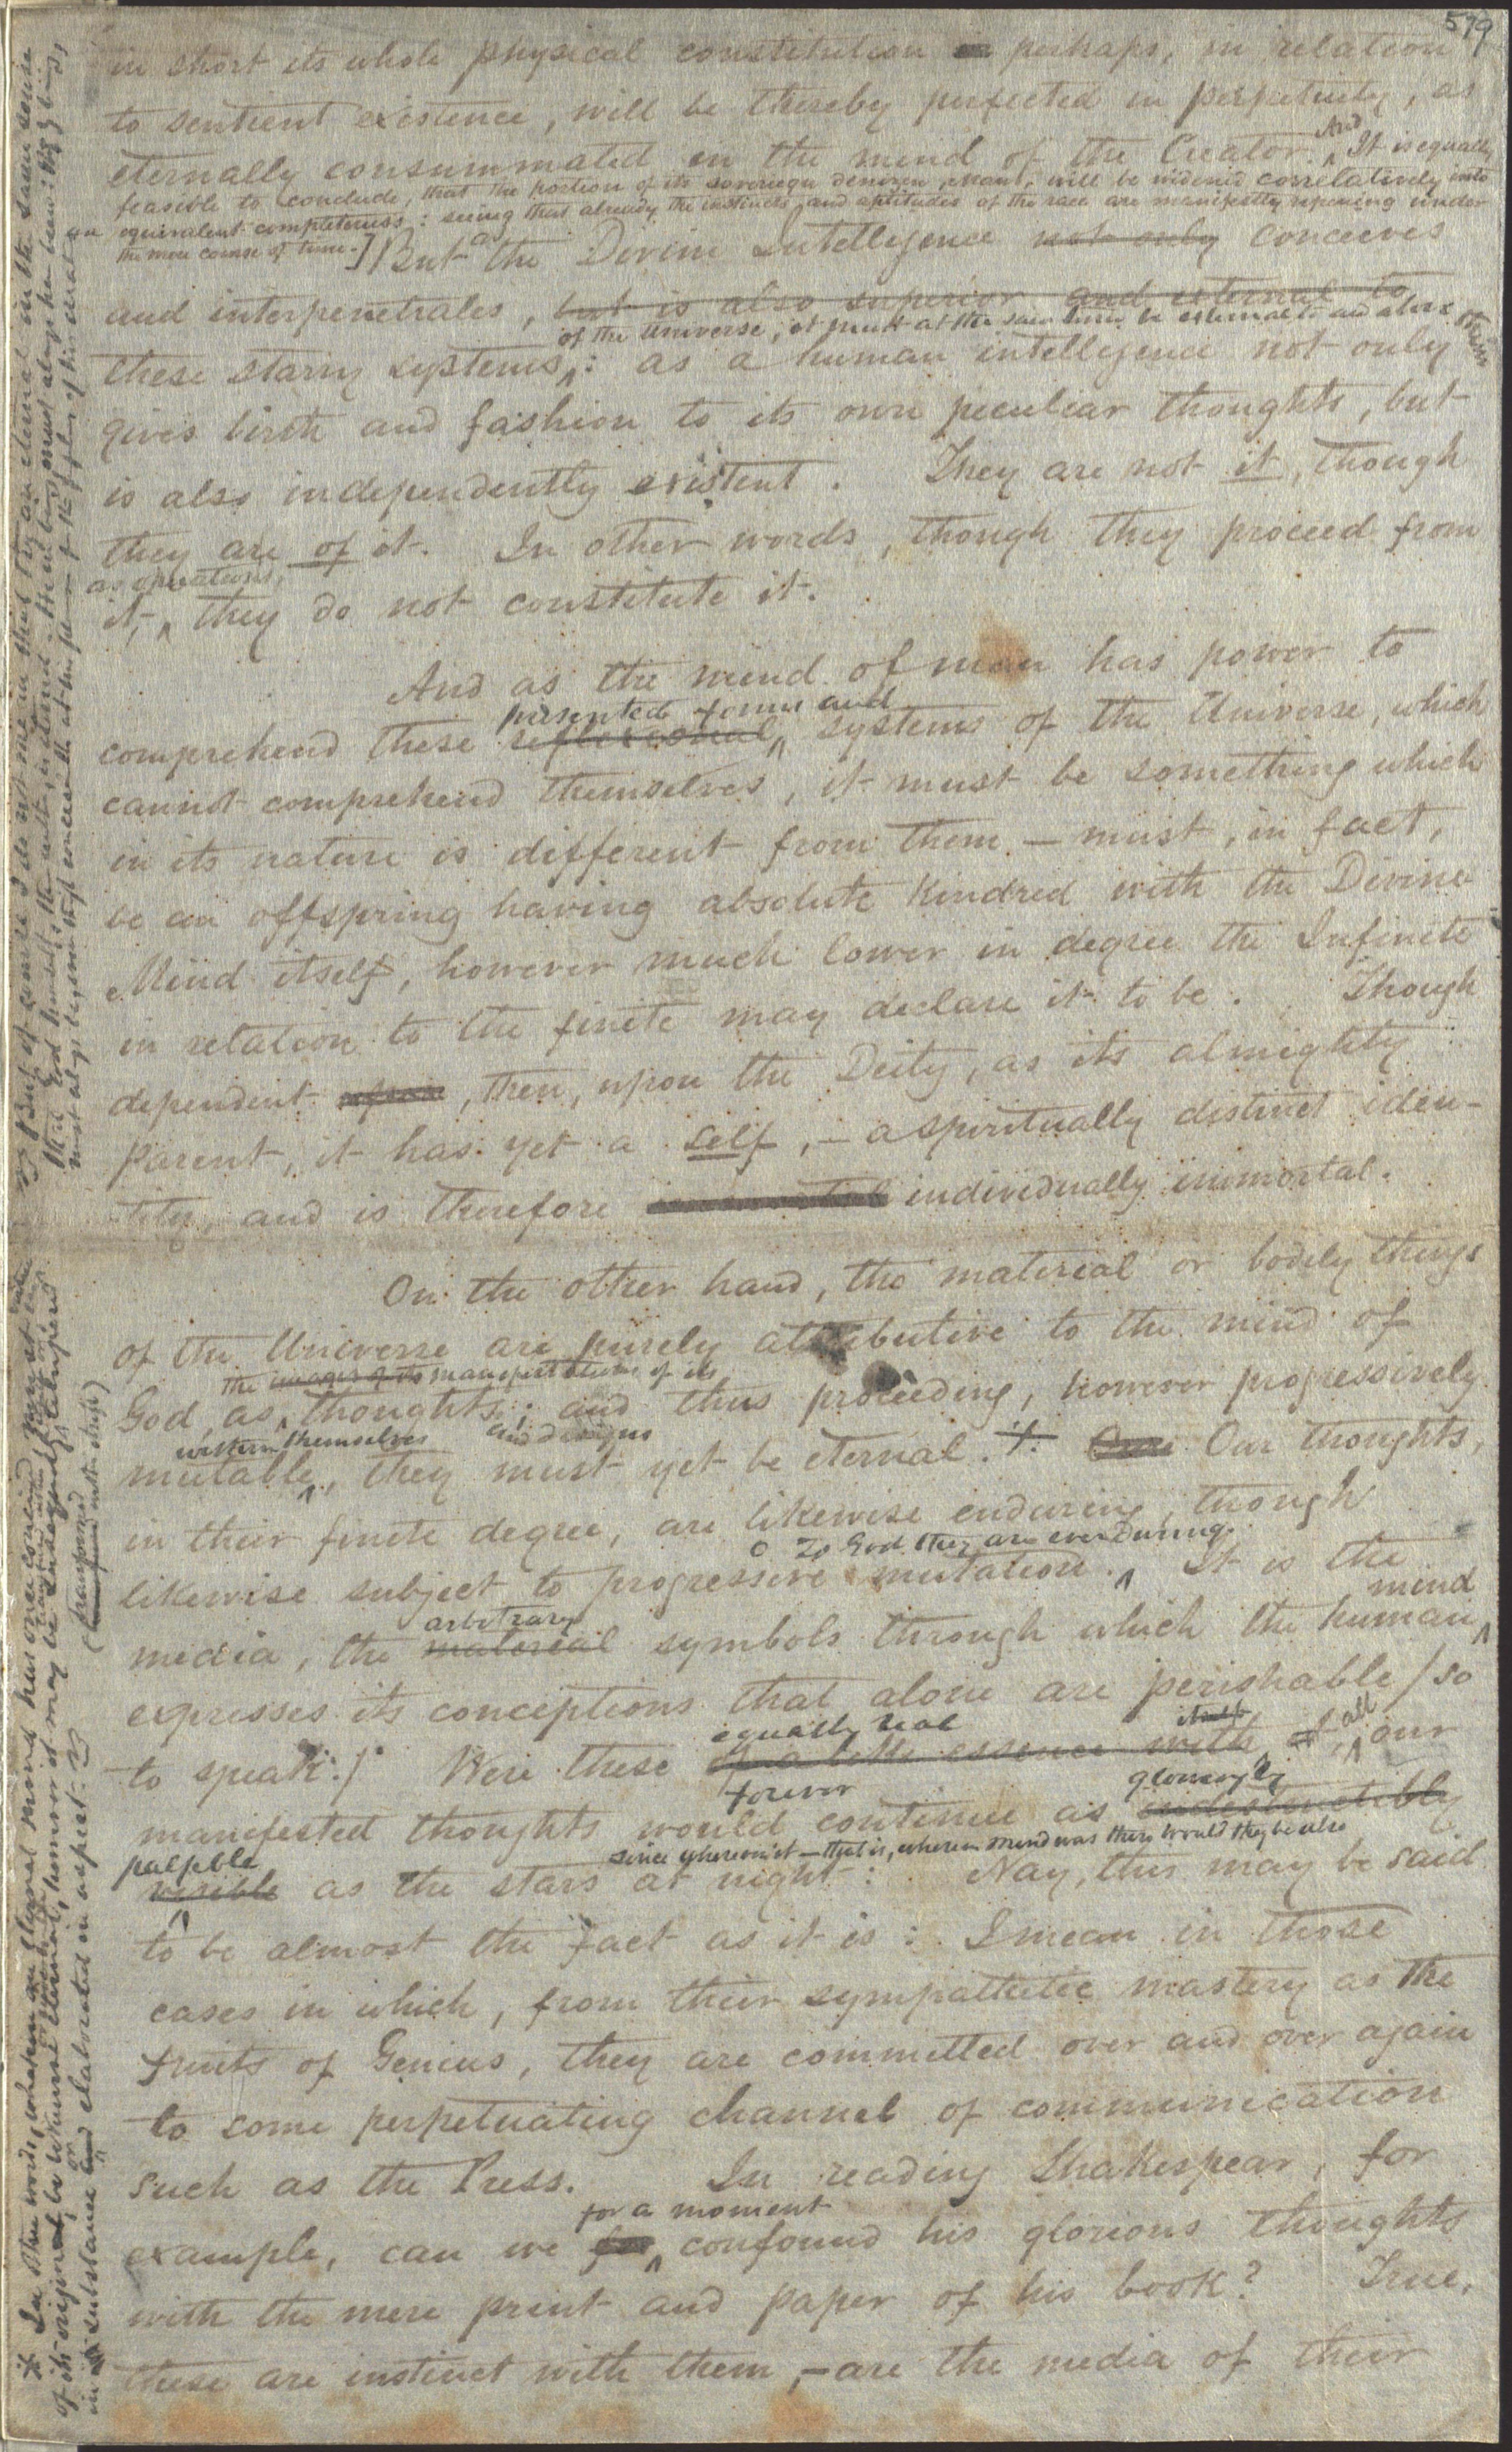 579
in short its whole physical constitution perhaps, in relation
to sentient existence, will be thereby perfected in perpetuity, as
eternally consummated in the mind of the Creator. And It is equally
feasible to conclude, that the portion of its sovereign denizen, Man, will be widened correlatively into
an equivalent completeness: seeing that already the instincts and aptitudes of the race are manifestly ripening under
the mere course of time.]
But as the Divine Intelligence not only conceives
and interpenetrates, but is also superior and external to
of the Universe, it must at the same time be external to and above them
these starry systems: as a human intelligence not only
gives birth and fashion to its own peculiar thoughts, but
is also independently existent. They are not it, though
they are of it. In other words, though they proceed from
as operations,
it, they do not constitute it.
And as the mind of man has power to
presented forms and
comprehend these systems of the Universe, which
cannot comprehend themselves, it must be something which
in its nature is different from them — must, in fact,
be an offspring having absolute kindred with the Divine
Mind itself, however much lower in degree the Infinite
in relation to the finite may declare it to be. Though
dependent upon, then, upon the Deity, as its almighty
Parent, it has yet a self, — a spiritually distinct iden-
tity, and is therefore individually immortal.
On the other hand, the material or bodily things
of the Universe are purely attributive to the mind of
the images of its manifestations of its
God, as thoughts; and thus proceeding, however progressively
within themselves and designs
mutable, they must yet be eternal. * Our Our thoughts,
in their finite degree, are likewise enduring, though
To God they are everduring.
likewise subject to progressive mutation. It is the
arbitrary mind
media, the material symbols through which the human
expresses its conceptions that alone are perishable (so
equally real itself all
to speak.) Were these of a like essence with it, our
forever gloriously
manifested thoughts would continue as indestructibly
palpble since wherein it — that is, wherein mind was there would they be also
visible as the stars at night: Nay, this may be said
to be almost the fact as it is: I mean in those
cases in which, from their sympathetic mastery as the
fruits of Genius, they are committed over and over again
to some perpetuating channel of communication
such as the Press. In reading Shakespear, for
for a moment
example, can we for confound his glorious thoughts
with the mere print and paper of his book? True,
these are instinct with them, — are the media of their
But of course I do not mean they be an eternal in the same sense
that God himself is
* In other words, whatever an Eternal mind has once conceived must
of its origin be eternal, however it may be
in substance and elaborated in aspect.
(transformed